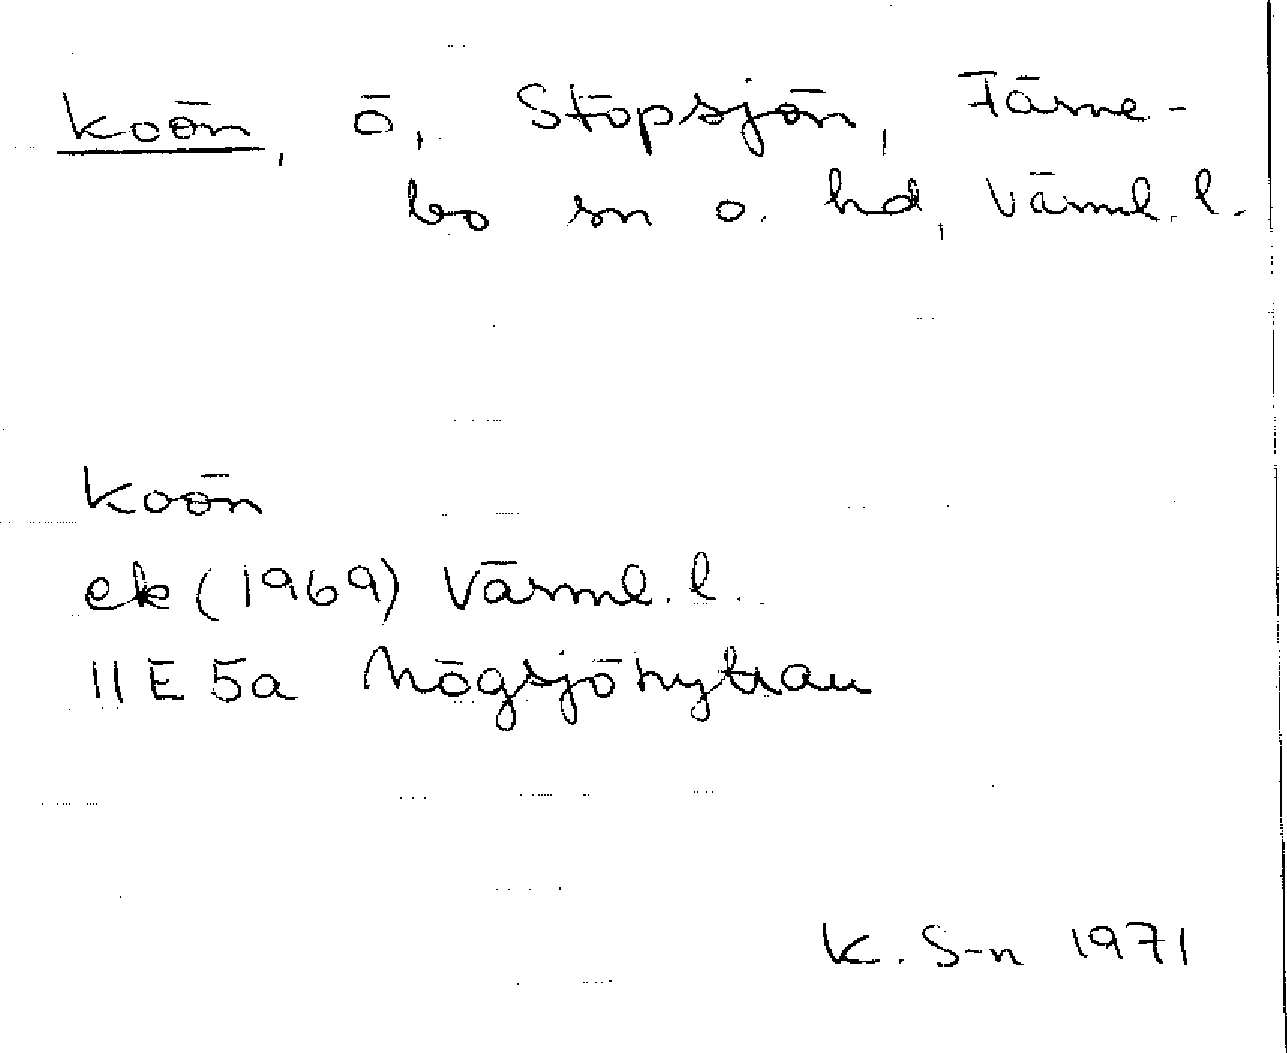 Koön, ö, Stöpsjön, Färne-
bo sn o. hd, Värml. l.
Koön
ek (1969) Värml. l.
11 E 5a Högsjöhyttan
K. S-n 1971